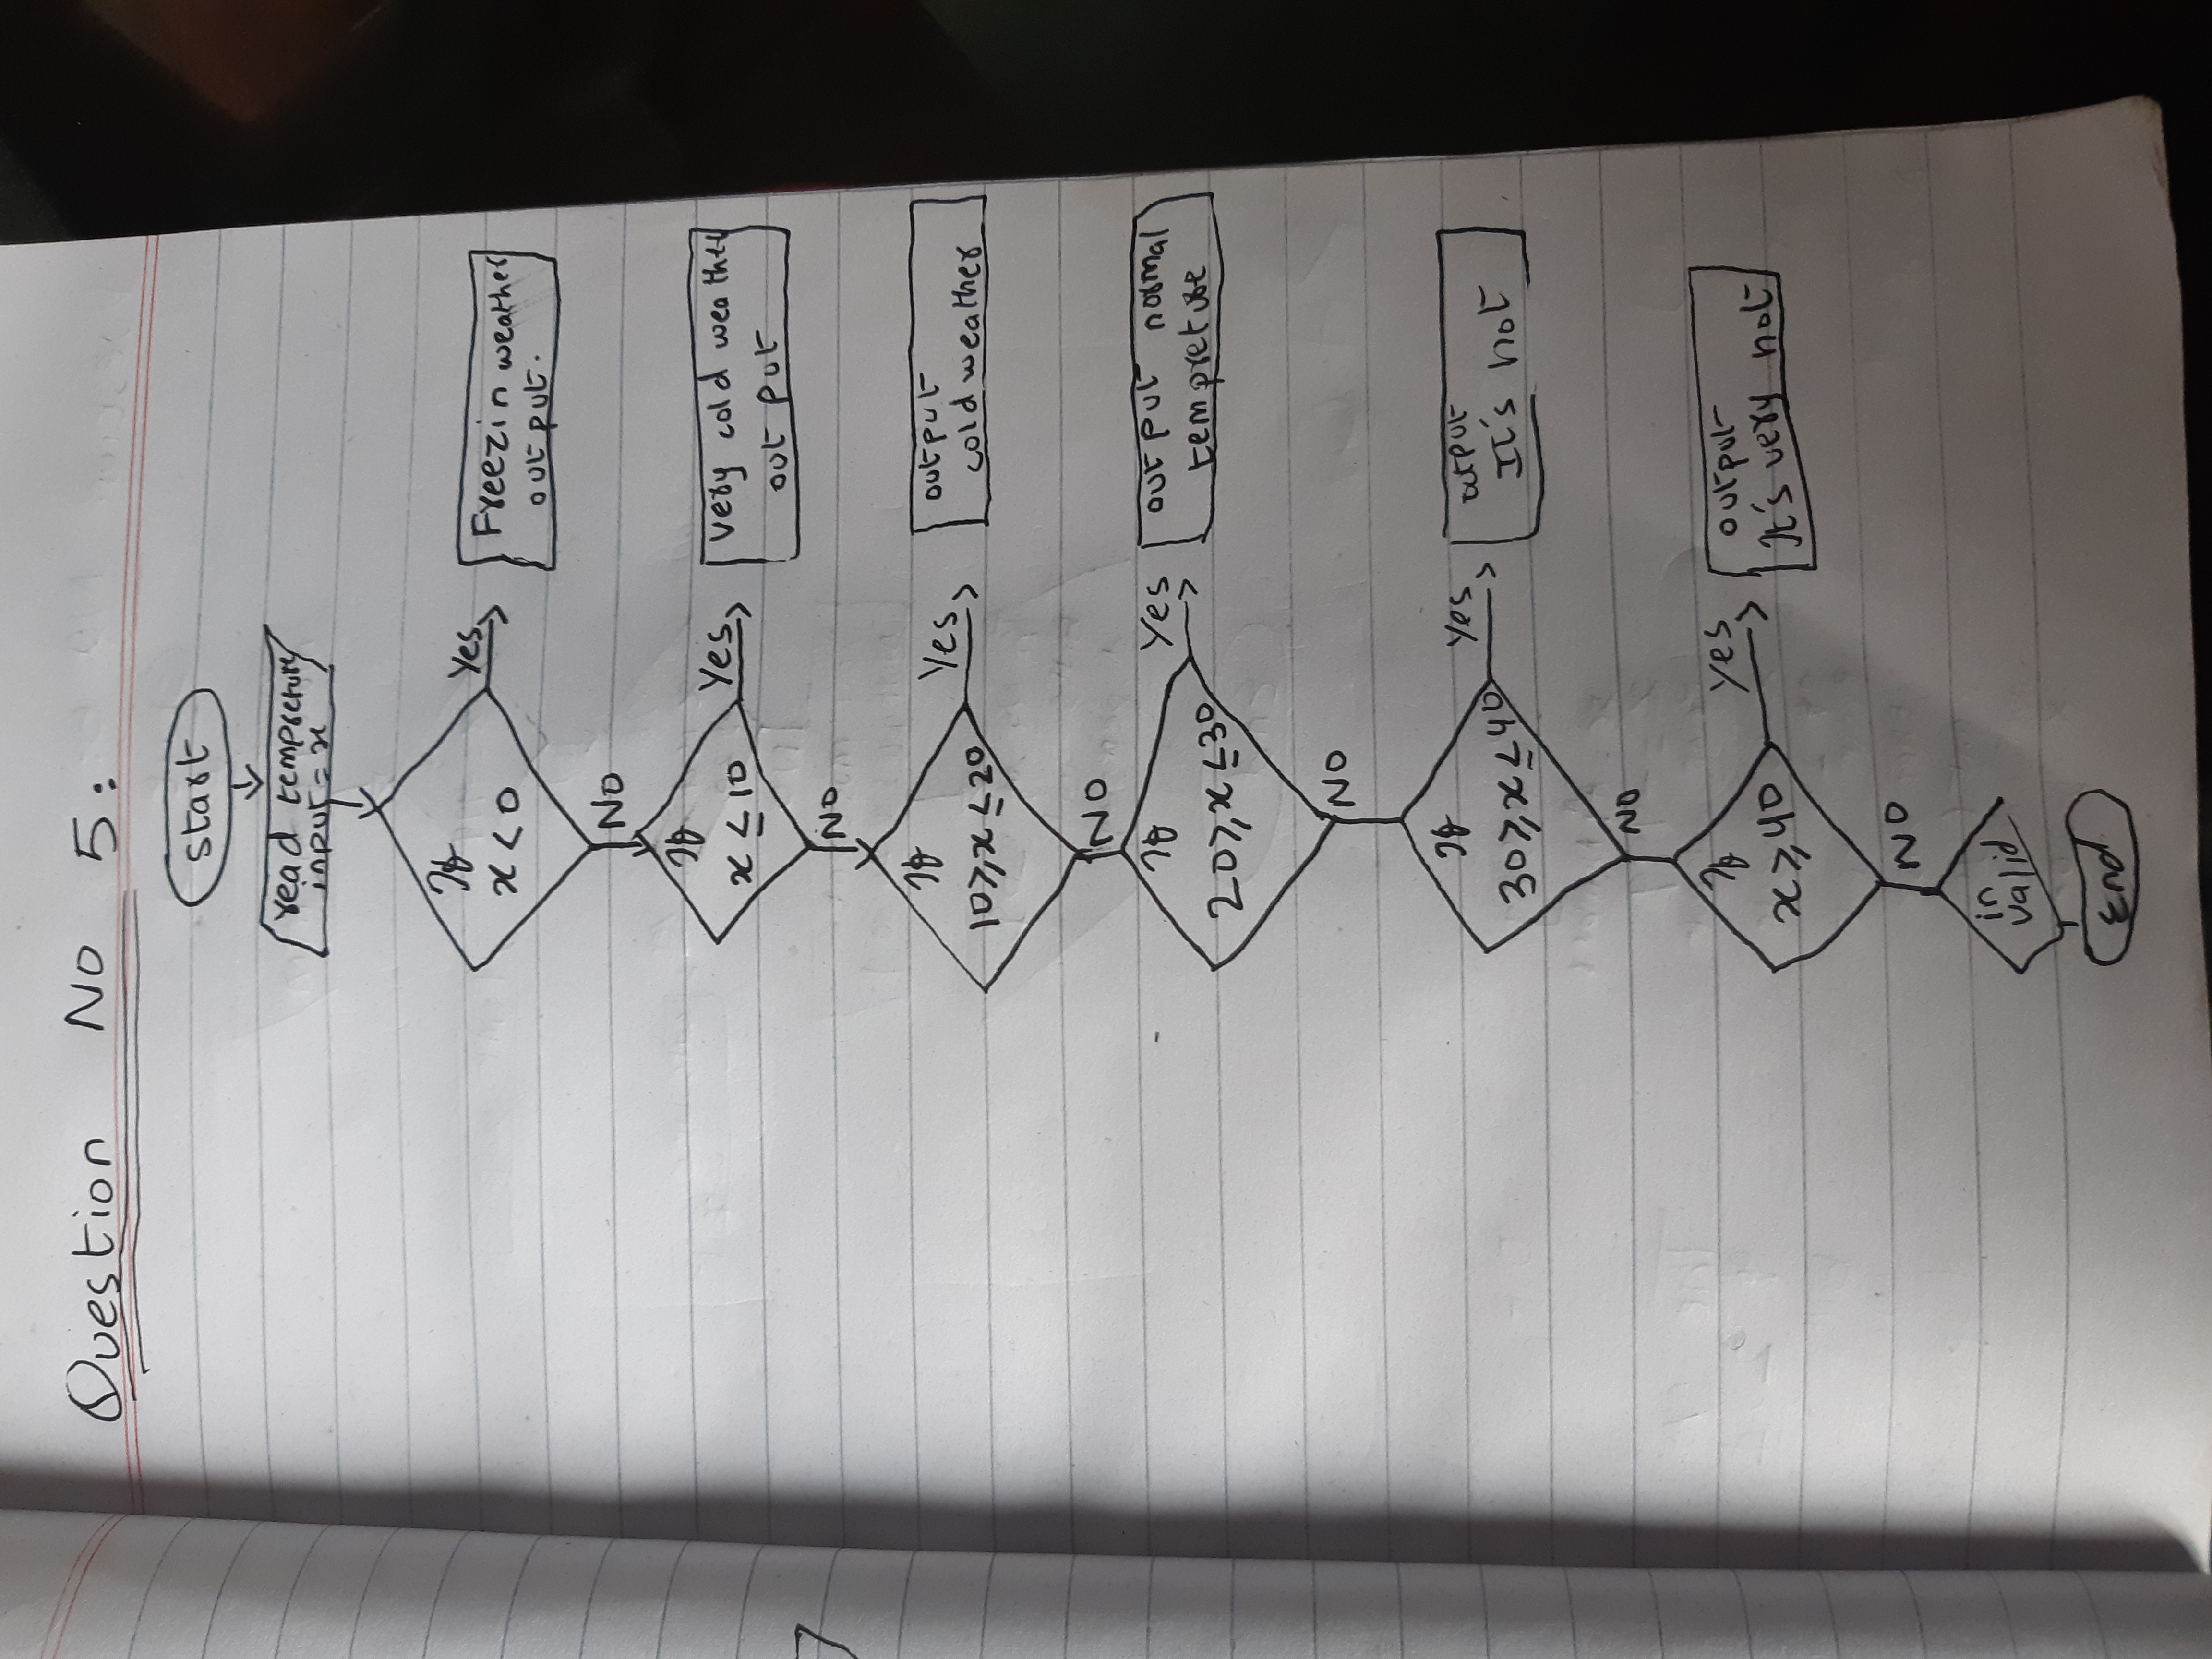 Question No 5:
start
read tempreture
input = x
If
x < 0
Yes
Freezin weather
out put.
NO
If
x ≤ 10
Yes
Very cold weather
out put
NO
If
10 ≥ x ≤ 20
Yes
output
cold weather
NO
If
20 ≥ x ≤ 30
Yes
out put normal
tempreture
NO
If
30 ≥ x ≤ 40
Yes
output
It's not
NO
If
x ≥ 40
Yes
output
It's very not
NO
in
valid
End